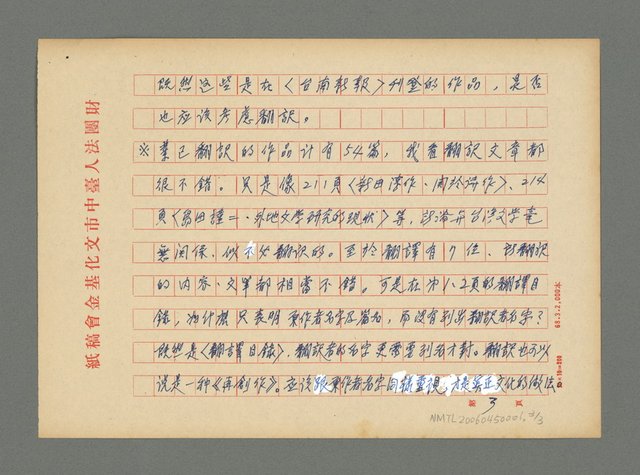 既然这些是在《台南新報》刊登的作品，是否
也应该考慮翻訳。
※業已翻訳的作品计有54篇，我看翻訳文章都
很不錯。只是像211頁《作、作》、214
頁《島田謹二、外地文学研究的現狀》等，台湾文学毫
無関係，似不必翻訳的。至於翻譯有7位，翻訳
的内容、文筆都相當不錯。可是在1、2頁的翻譯目
錄，為什麼只表明原作者名字及篇名，而沒有列出翻訳者名字？
既然是《翻譯目錄》，翻訳者的名字更需要列名才對。翻訳也可以
说是一种《再創作》。应该跟原作者名字同樣重視，才是真正文化的做法。
第 3 頁
NMTL20060450001 3/3
財團法人臺中市文化基金會稿紙
68.3.2,000本